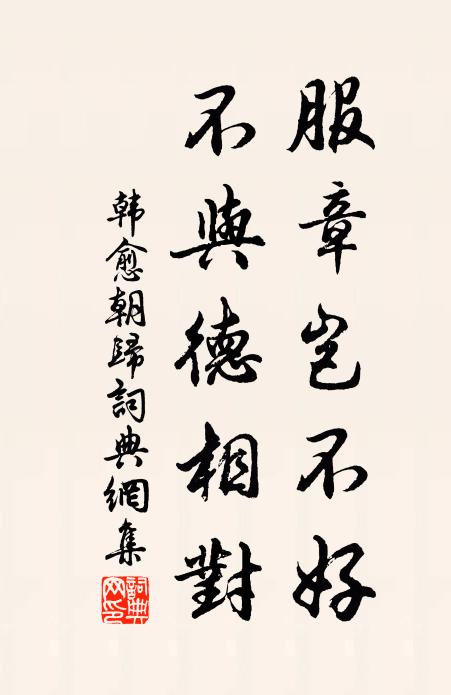 服章岂不好
不與德相對
韩愈朝歸詞典網集
詞典网印